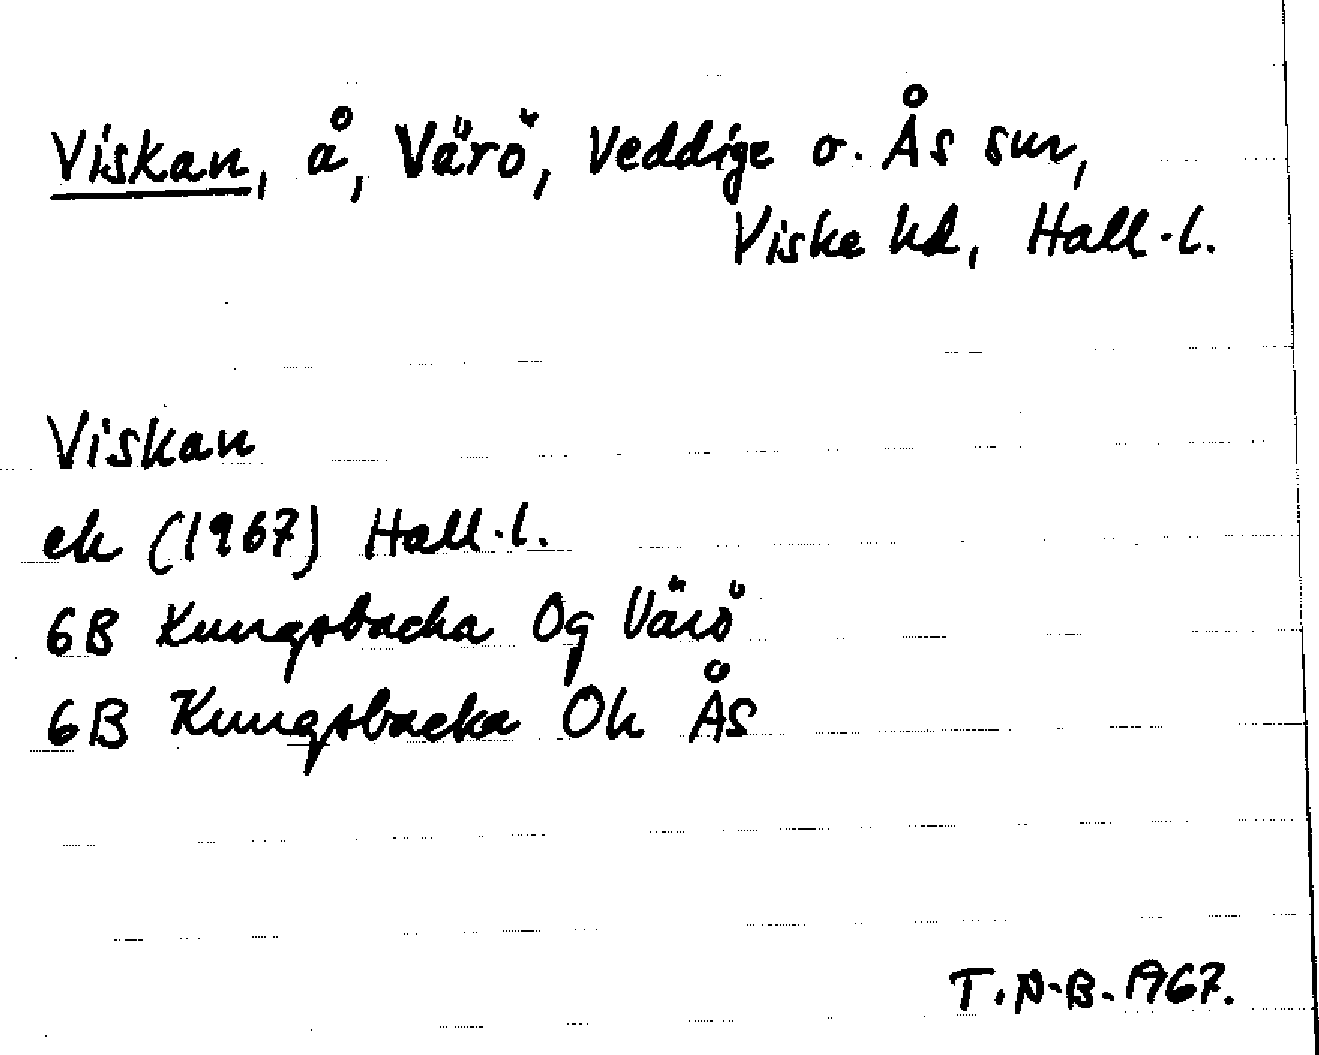 Viskan, å, Värö, Veddige o. Ås snr,
Viske hd, Hall.l.
Viskan
ek (1967) Hall.l.
6B Kungsbacka 0g Värö
6B Kungsbacka 0h Ås
T.N-B. 1967.